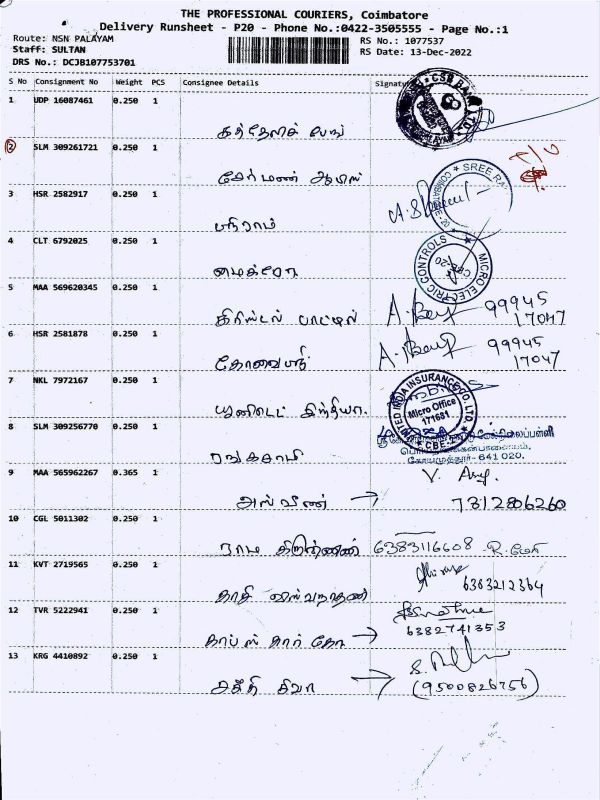 THE PROFESSIONAL COURIERS, Coimbatore
Delivery Runsheet - P20 - Phone No.:0422-3505555 - Page No.:1
Route: NSN PALAYAM RS No.: 1077537
Staff: SULTAN RS Date: 13-Dec-2022
DRS No.: DCJB107753701
S No Consignment No Weight PCS Consignee Details Signature
1 UDP 16087461 0.250 1
CSB BANK LTD.
2 SLM 309261721 0.250 1
3 HSR 2582917 0.250 1
SREE
COIMBATORE
ஸ்ரீராம்
4 CLT 6792025 0.250 1
MICRO ELECTRIC CONTROLS
CBE-20
மைக்ரோ
5 MAA 569620345 0.250 1
கிரிஸ்டல் பாட்டில் 99945
17047
6 HSR 2581878 0.250 1
கோவை ஸ்ரீ 99945
17047
7 NKL 7972167 0.250 1
UNITED INDIA INSURANCE CO. LTD.
Micro Office
171681
CBE
யுனிடெட் இந்தியா.
8 SLM 309256770 0.250 1
ரங்கசாமி
கோயமுத்தூர்-641 020.
9 MAA 565962267 0.365 1
அஸ்வின் → 7812806260
10 CGL 5011302 0.250 1
ராம கிருஷ்ணன் 6383116608
11 KVT 2719565 0.250 1
காசி விஸ்வநாதன் 6383212364
12 TVR 5222941 0.250 1
→ 6382741353
13 KRG 4410892 0.250 1
சக்தி சிவா → (9500826756)